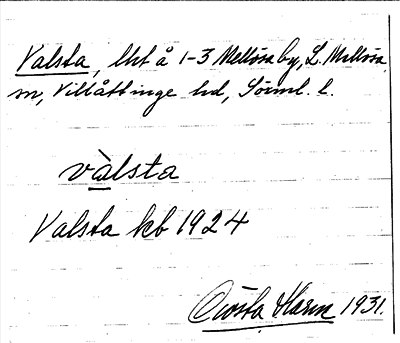 Valsta, lht å 1-3 Mellösa by, L. Mellösa
sn, Villåttinge hd, Sörml. l.
vàlsta
Valsta kb 1924
Gösta Harm 1931.